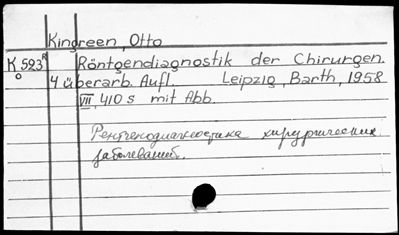 Kingreen, Otto
K 593 R
Röntgendiagnostik der Chirurgen.
4 überarb. Aufl. Leipzig, Barth, 1958
VIII, 410 s mit Abb.
Рентгенодиагностика хирургических
заболеваний.